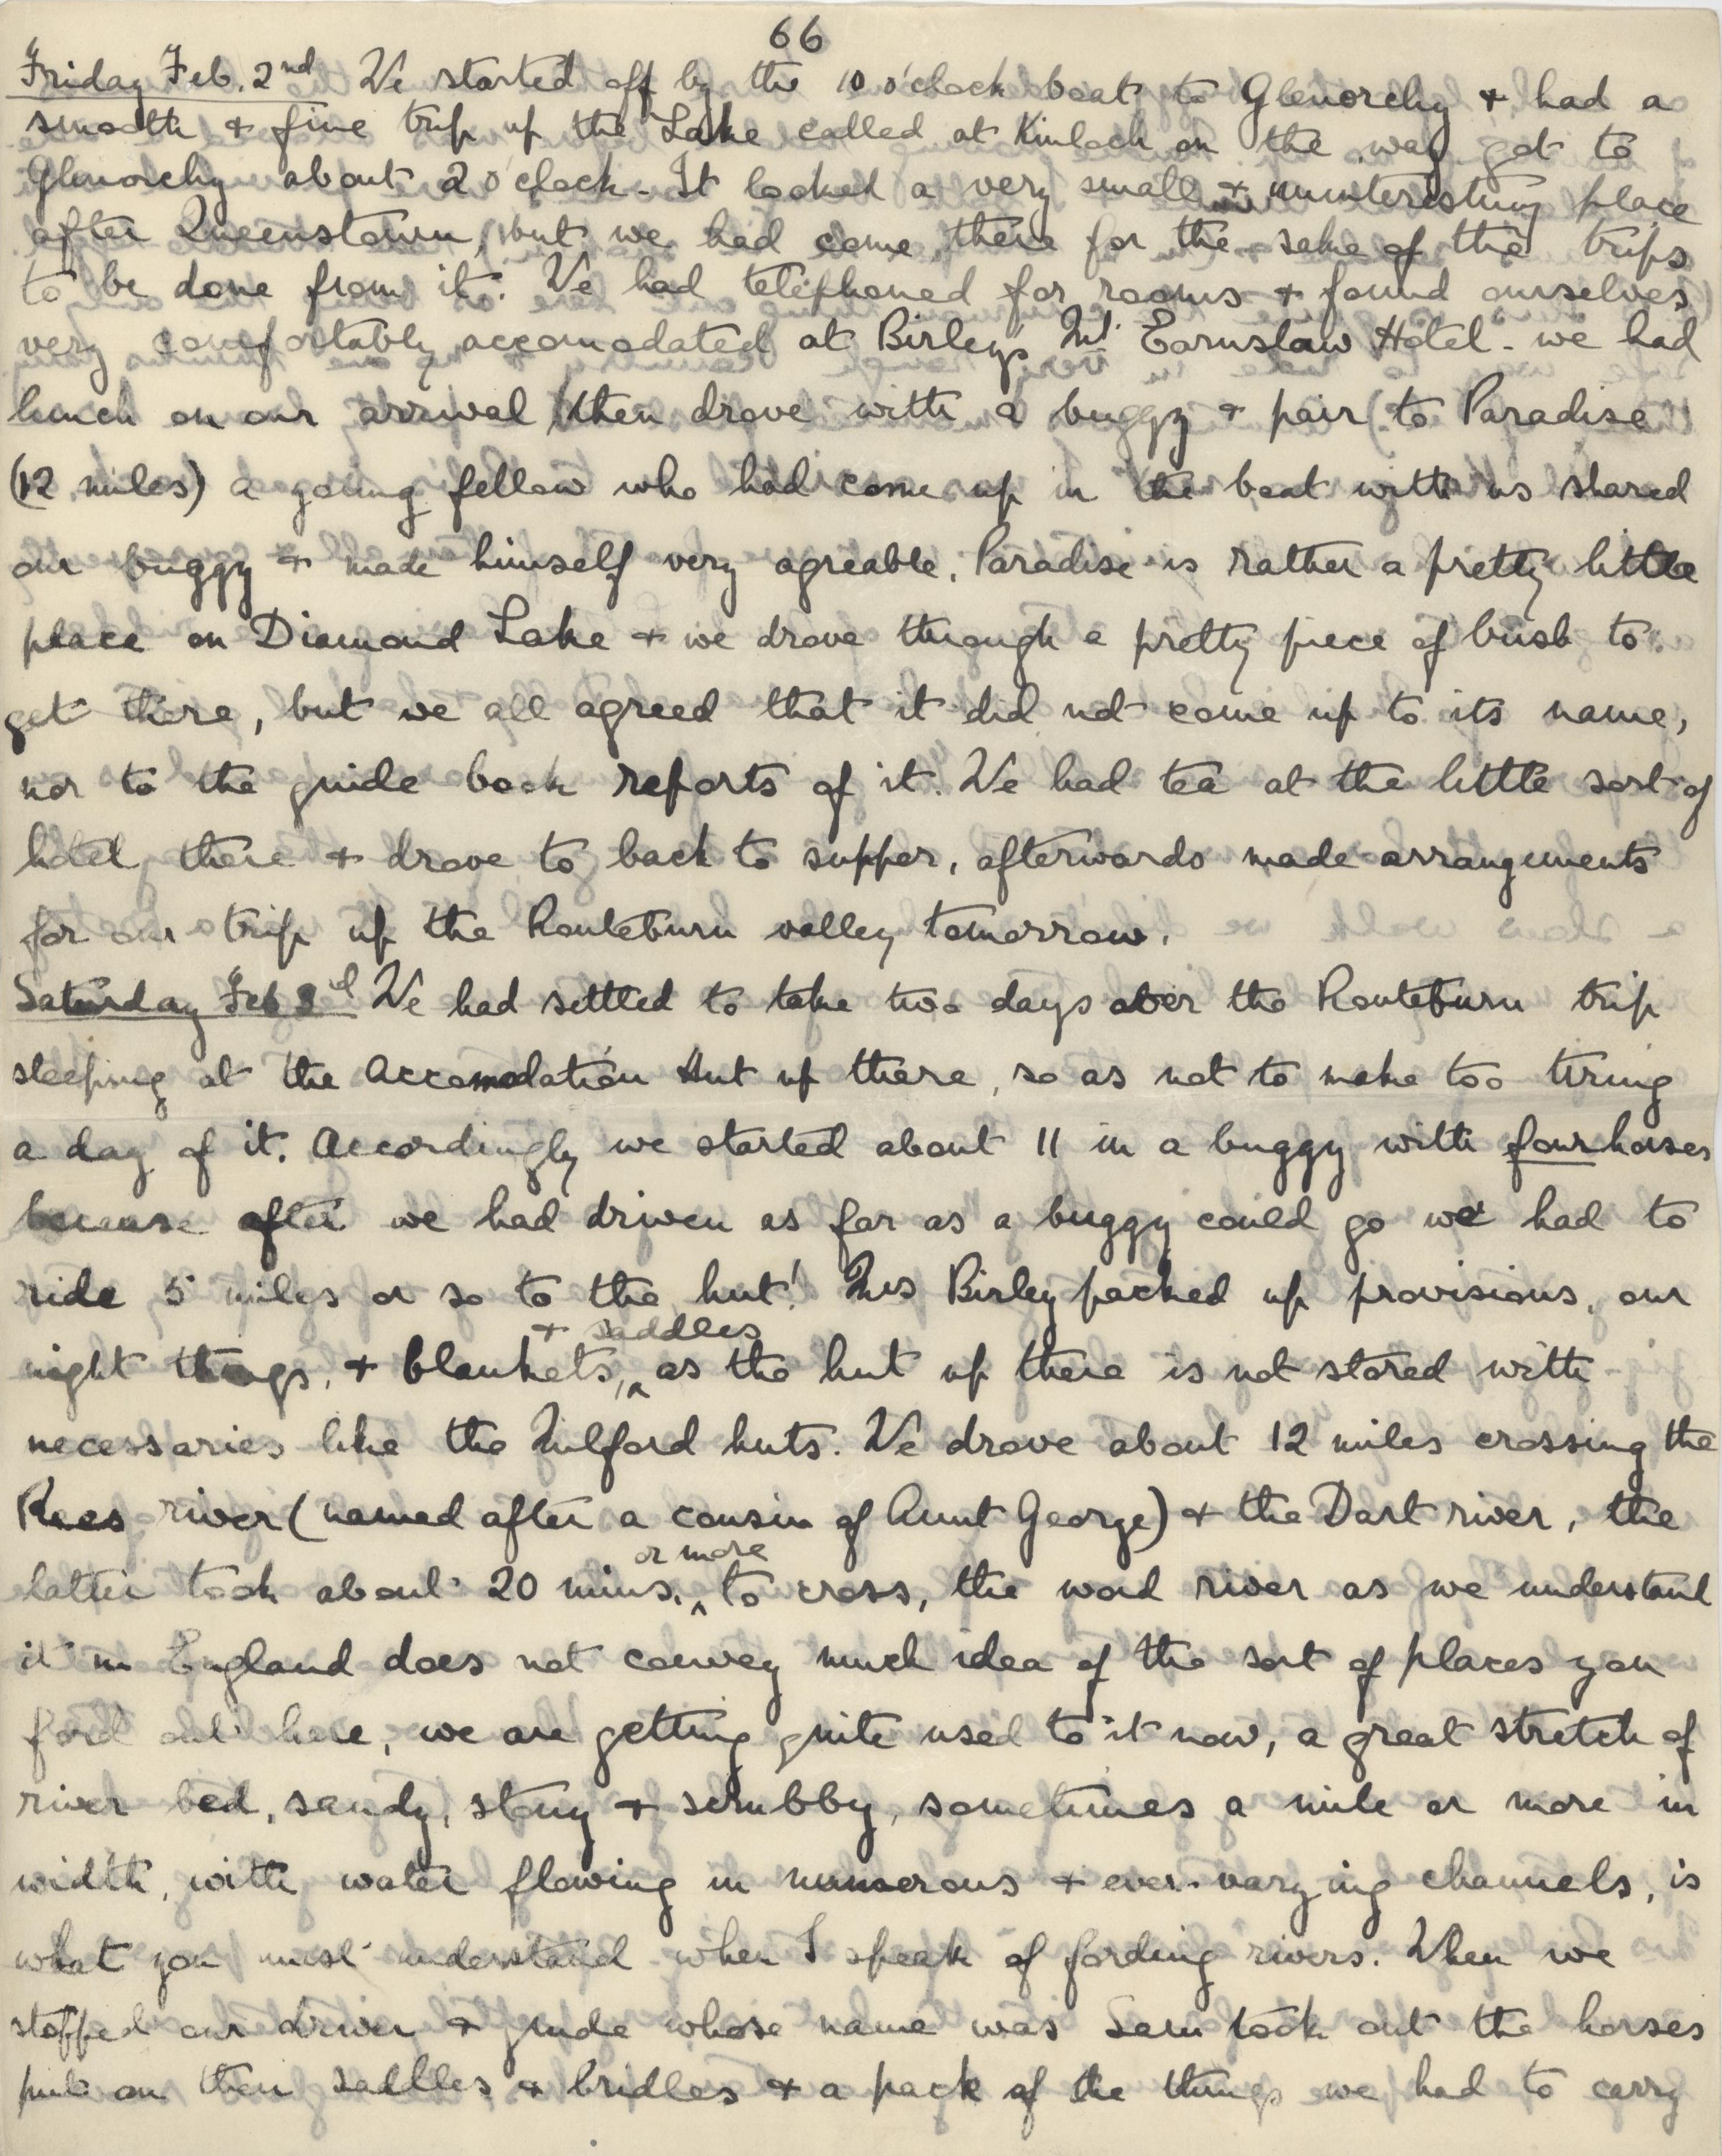 66
Friday Feb. 2nd We started off by the 10 o'clock boat to Glenorchy + had a
smooth + fine trip up the Lake called at Kinloch on the way got to
Glenorchy about 2 o'clock - It looked a very small + uninteresting place
after Queenstown, but we had come there for the sake of the trips
to be done from it. We had telephoned for rooms + found ourselves
very comfortably accomodated at Birley's Mt Earnslaw Hotel - we had
lunch on our arrival then drove with a buggy + pair to Paradise
(12 miles) a young fellow who had come up in the boat with us shared
our buggy + made himself very agreable. Paradise is rather a pretty little
place on Diamond Lake + we drove through a pretty piece of bush to
get there, but we all agreed that it did not come up to its name,
nor to the guide book reports of it. We had tea at the little sort of
hotel there + drove to back to supper, afterwards made arrangements
for our trip up the Routeburn valley tomorrow.
Saturday Feb 3d We had settled to take two days over the Routeburn trip
sleeping at the Accomodation Hut up there, so as not to make too tiring
a day of it. Accordingly we started about 11 in a buggy with four horses
because after we had driven as far as a buggy could go we had to
ride 5 miles or so to the hut! Mrs Birley packed up provisions, our
+ saddles
night things, + blankets, ^ as the hut up there is not stored with
necessaries like the Milford huts. We drove about 12 miles crossing the
Rees river (named after a cousin of Aunt George) + the Dart river, the
or more
latter took about 20 mins. ^ to cross, the word river as we understand
it in England does not convey much idea of the sort of places you
ford out here, we are getting quite used to it now, a great stretch of
river bed, sandy, stony + scrubby, sometimes a mile or more in
width, with water flowing in numerous + ever-varying channels, is
what you must understand when I speak of fording rivers. When we
stopped our driver + guide whose name was Sam took out the horses
put on their saddles + bridles + a pack of the things we had to carry